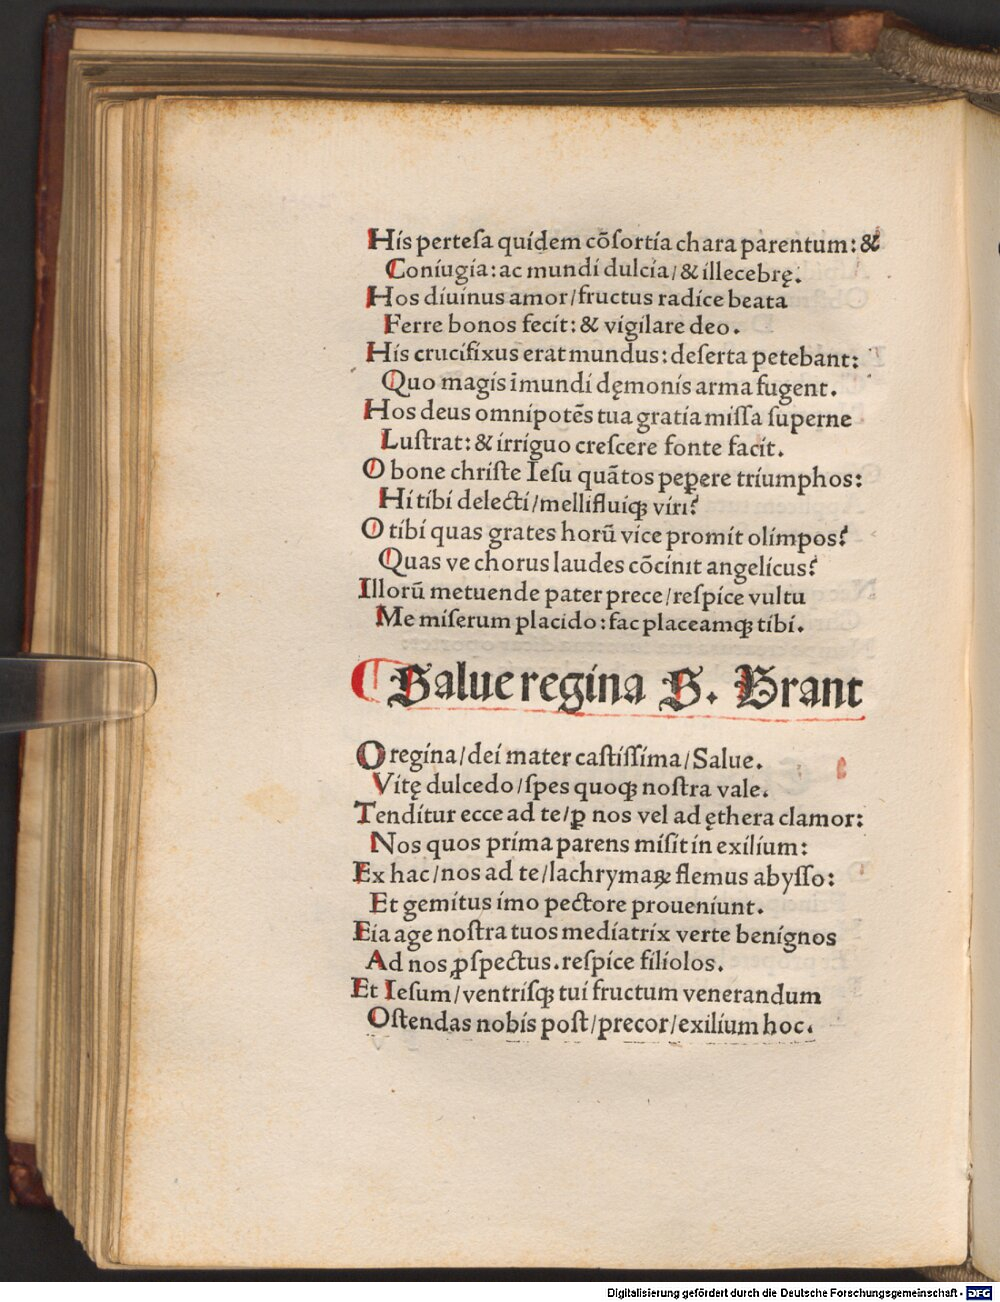 His perteſa quidem cõſortia chara parentum: &
Coniugia: ac mundi dulcia/ & illecebrę.
Hos diuinus amor/ fructus radice beata
Ferre bonos fecit: & vigilare deo.
His crucifixus erat mundus: deſerta petebant:
Quo magis īmundi dęmonis arma fugent.
Hos deus omnipotẽs tua gratia miſſa ſuperne
Luſtrat: & irriguo creſcere fonte facit.
O bone chriſte Ieſu quãtos peꝑere triumphos:
Hi tibi delecti/ mellifluiqꝫ viri?
O tibi quas grates horũ vice promit olimpos?
Quas ve chorus laudes cõcinit angelicus?
Illorũ metuende pater prece/ reſpice vultu
Me miſerum placido: fac placeamqꝫ tibi.
⸿ Salue regina S. Brant
O regina/ dei mater caſtiſſima/ Salue.
Vitę dulcedo/ ſpes quoqꝫ noſtra vale.
Tenditur ecce ad te/ ꝑ nos vel ad ęthera clamor:
Nos quos prima parens miſit in exilium:
Ex hac/ nos ad te/ lachrymaꝝ flemus abyſſo:
Et gemitus imo pectore proueniunt.
Eia age noſtra tuos mediatrix verte benignos
Ad nos ꝓſpectus. reſpice filiolos.
Et Ieſum/ ventriſqꝫ tui fructum venerandum
Oſtendas nobis poſt/ precor/ exilium hoc.
Digitalisierung gefördert durch die Deutsche Forschungsgemeinschaft - DFG